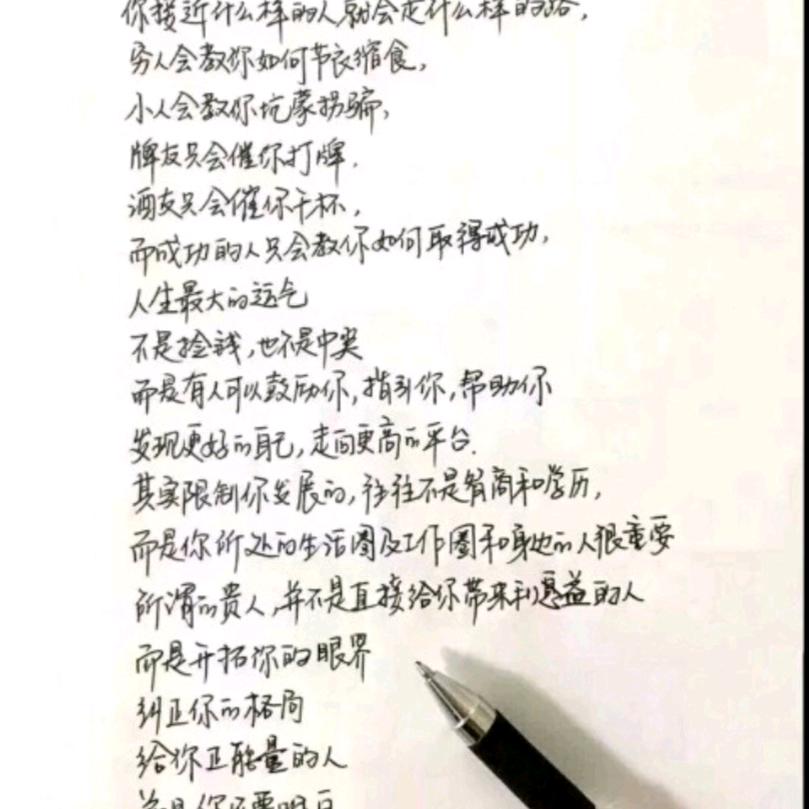 你接近什么样的人就会走什么样的路，
穷人会教你如何节衣缩食，
小人会教你坑蒙拐骗，
牌友只会催你打牌．
酒友只会催你干杯，
而成功的人只会教你如何取得成功，
人生最大的运气
不是捡钱，也不是中奖
而是有人可以鼓励你，指引你，帮助你
发现更好的自己，走向更高的平台．
其实限制你发展的，往往不是智商和学历，
而是你所处的生活圈及工作圈和身边的人很重要
所谓的贵人，并不是直接给你带来利益的人
而是开拓你的眼界
纠正你的格局
给你正能量的人